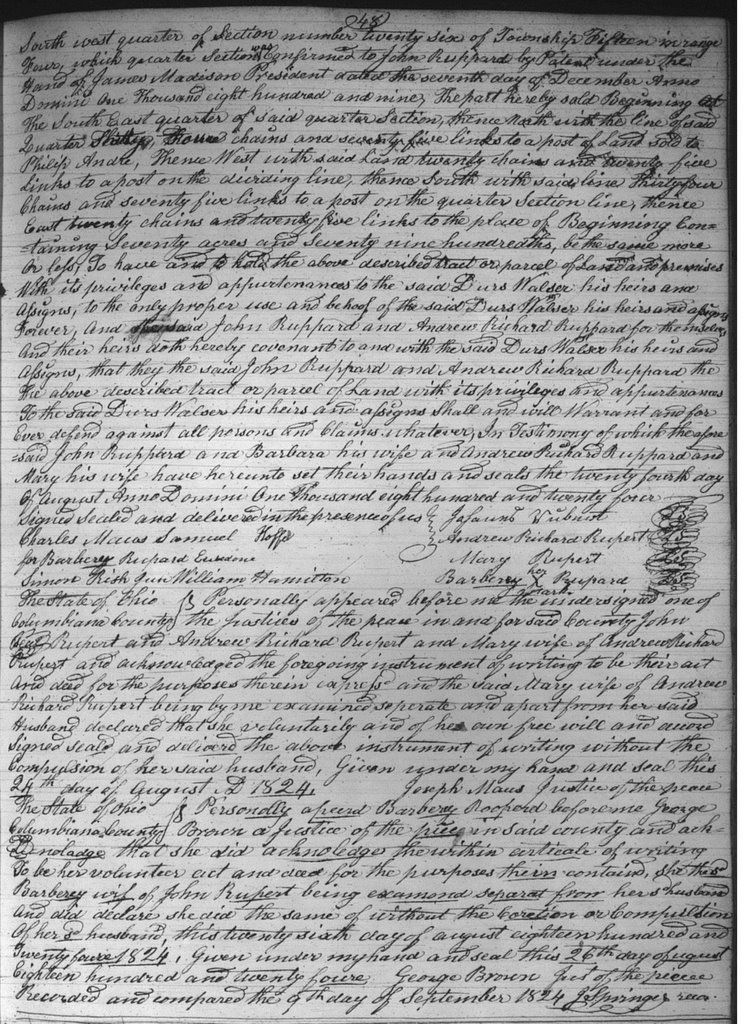 248
South west quarter of Section number twenty six of Township Fifteen in range
Four, which quarter Section was Confirmed to John Ruppard by Patent under the
Hand of James Madison President dated the seventh day of December Anno
Domini One Thousand eight hundred and nine, The part hereby sold Beginning at
The South East quarter of said quarter Section, thence North with the line of said
Quarter Thirty chains and seventy five links to a post of Land sold to
Philip Andre, Thence West with said Land twenty chains and twenty five
Links to a post on the dividing line, thence South with said line Thirty four
Chains and seventy five links to a post on the quarter Section line, thence
East twenty chains and twenty five links to the place of Beginning Con=
=taining Seventy acres and Seventy nine hundredths, be the same more
Or less, To have and to hold the above described tract or parcel of Land and premises
With its privileges and appurtenances to the said Durs Walser his heirs and
Assigns, to the only proper use and behoof of the said Durs Walser his heirs and assigns
Forever, And said John Ruppard and Andrew Richard Ruppard for themselves
And their heirs doth hereby covenant to and with the said Durs Walser his heirs and
Assigns, that they the said John Ruppard and Andrew Richard Ruppard the
The above described tract or parcel of Land with its privileges and appurtenances
To the said Durs Walser his heirs and assigns Shall and will Warrant and for
Ever defend against all persons and Claims whatever, In Testimony of which the afore
=said John Rupperd and Barbara his wife and Andrew Richard Ruppard and
Mary his wife have hereunto set their hands and seals the twenty fourth day
Of August Anno Domini One Thousand eight hundred and twenty four
Signed Sealed and delivered in the presence of us
Andrew Richard Rupert
Charles Samuel
Mary Rupert
for Barberey Rupard
Barberey her X mark Rupard
Simon William Hamilton
The State of Ohio } Personally appeared before me the undersigned one of
Columbiana County } the justices of the peace in and for said County John
Rupert and Andrew Richard Rupert and Mary wife of Andrew Richard
Rupert and acknowledged the foregoing instrument of writing to be their act
And deed for the purposes therein express'd and the said Mary wife of Andrew
Richard Rupert being by me examined seperate and apart from her said
Husband declared that she voluntarily and of her own free will and accord
Signed seald and deliverd the above instrument of writing without the
Compulsion of her said husband, Given under my hand and seal this
24th day of August AD 1824. Joseph Maus Justice of the peace
The State of Ohio } Personally apeard Barberey Rooperd before me George
Columbiana County } Brown a justice of the piece in said county and ack-
=Knoladge that she did acknoledge the within articale of writing
To be her volunteer act and deed for the purposes therin containd, She the sd
Barberey wif of John Rupert being examond separat from her sd husband
And did declare she did the same of without the Coretion or Compulsion
Of her sd husband, this twenty sixth day of august eighteen hundred and
Twenty foure 1824, Given under my hand and seal this 26th day of august
Eighteen hundred and twenty foure George Brown Jus of the peece
Recorded and compared the 9th day of September 1824 J Springer recr.